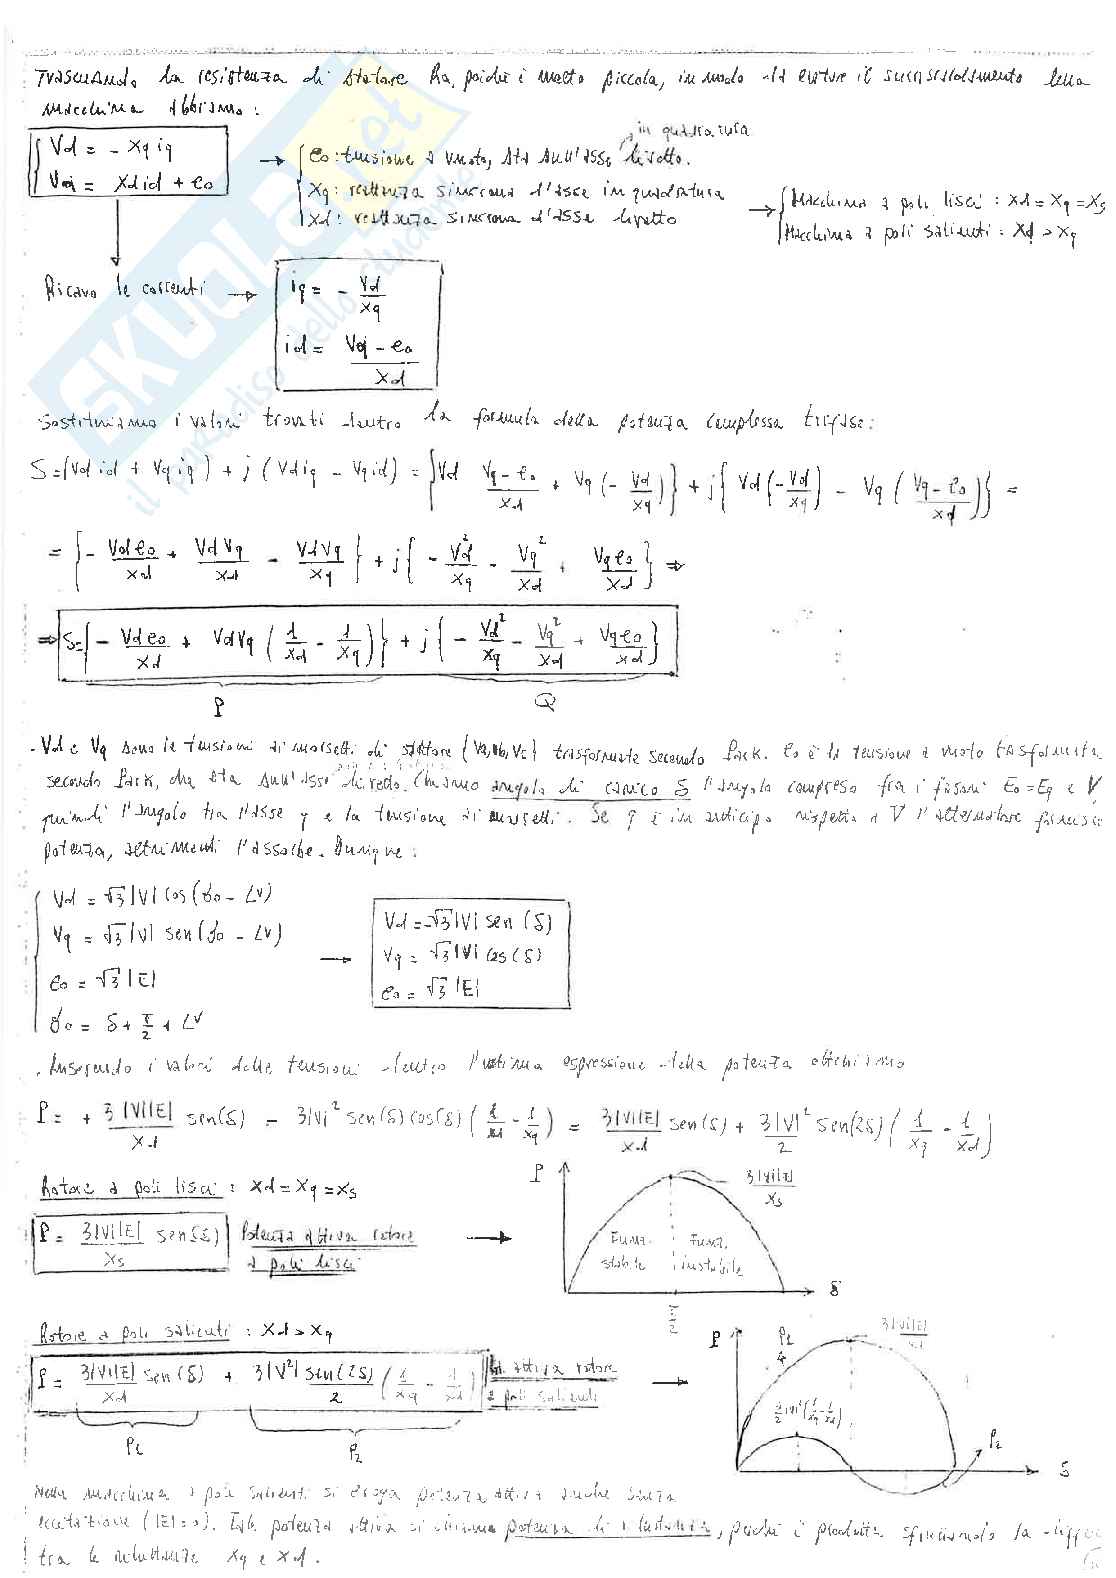 Trascurando la resistenza di statore Ra, poiché è molto piccola, in modo da evitare il surriscaldamento della
macchina abbiamo:
in quadratura
Vd = - xq iq
Vq = xd id + e₀
→ e₀: tensione a vuoto, sta sull'asse diretto.
xq: reattanza sincrona d'asse in quadratura
xd: reattanza sincrona d'asse diretto
→ Macchina a poli lisci: xd = xq = xs
Macchina a poli salienti: xd > xq
Ricavo le correnti →
iq = - Vd/xq
id = (Vq - e₀)/xd
Sostituiamo i valori trovati dentro la formula della potenza complessa trifase:
S = (Vd id + Vq iq) + j (Vd iq - Vq id) = {Vd (Vq - e₀)/xd + Vq (- Vd/xq)} + j{Vd (-Vd/xq) - Vq ((Vq - e₀)/xd)} =
= {- Vd e₀/xd + Vd Vq/xd - Vd Vq/xq} + j{- Vd²/xq - Vq²/xd + Vq e₀/xd} ⇒
⇒ S = {- Vd e₀/xd + Vd Vq (1/xd - 1/xq)} + j{- Vd²/xq - Vq²/xd + Vq e₀/xd}
P Q
- Vd e Vq sono le tensioni ai morsetti di statore (Va, Vb, Vc) trasformate secondo Park. e₀ è la tensione a vuoto trasformata
secondo Park, che sta sull'asse diretto. Chiamo angolo di carico δ l'angolo compreso fra i fasori E₀ = Eq e V,
quindi l'angolo tra l'asse q e la tensione ai morsetti. Se q è in anticipo rispetto a V l'alternatore fornisce
potenza, altrimenti l'assorbe. Dunque:
Vd = √3 |V| cos(δ₀ - ∠V)
Vq = √3 |V| sen(δ₀ - ∠V)
e₀ = √3 |E|
δ₀ = δ + π/2 + ∠V
→
Vd = -√3 |V| sen(δ)
Vq = √3 |V| cos(δ)
e₀ = √3 |E|
. Inserendo i valori delle tensioni dentro l'ultima espressione della potenza otteniamo
P = + 3|V||E|/xd sen(δ) - 3|V|² sen(δ) cos(δ) (1/xd - 1/xq) = 3|V||E|/xd sen(δ) + 3|V|²/2 sen(2δ) (1/xq - 1/xd)
Rotore a poli lisci: xd = xq = xs
P = 3|V||E|/xs sen(δ)
Potenza attiva rotore
a poli lisci
→
P
3|V||E|/xs
Funz. stabile
Funz. instabile
δ
π/2
Rotore a poli salienti: xd > xq
P = 3|V||E|/xd sen(δ) + 3|V²| sen(2δ)/2 (1/xq - 1/xd)
attiva rotore
a poli salienti
→
P1 P2
P
P1
3|V||E|/xd
3/2 |V|² (1/xq - 1/xd)
P2
δ
Nella macchina a poli salienti si eroga potenza attiva anche senza
eccitazione (|E|=0). potenza attiva si chiama potenza di riluttanza, poiché è prodotta sfruttando la
tra le riluttanze xq e xd.
SKUOLA.net
il paradiso dello studente